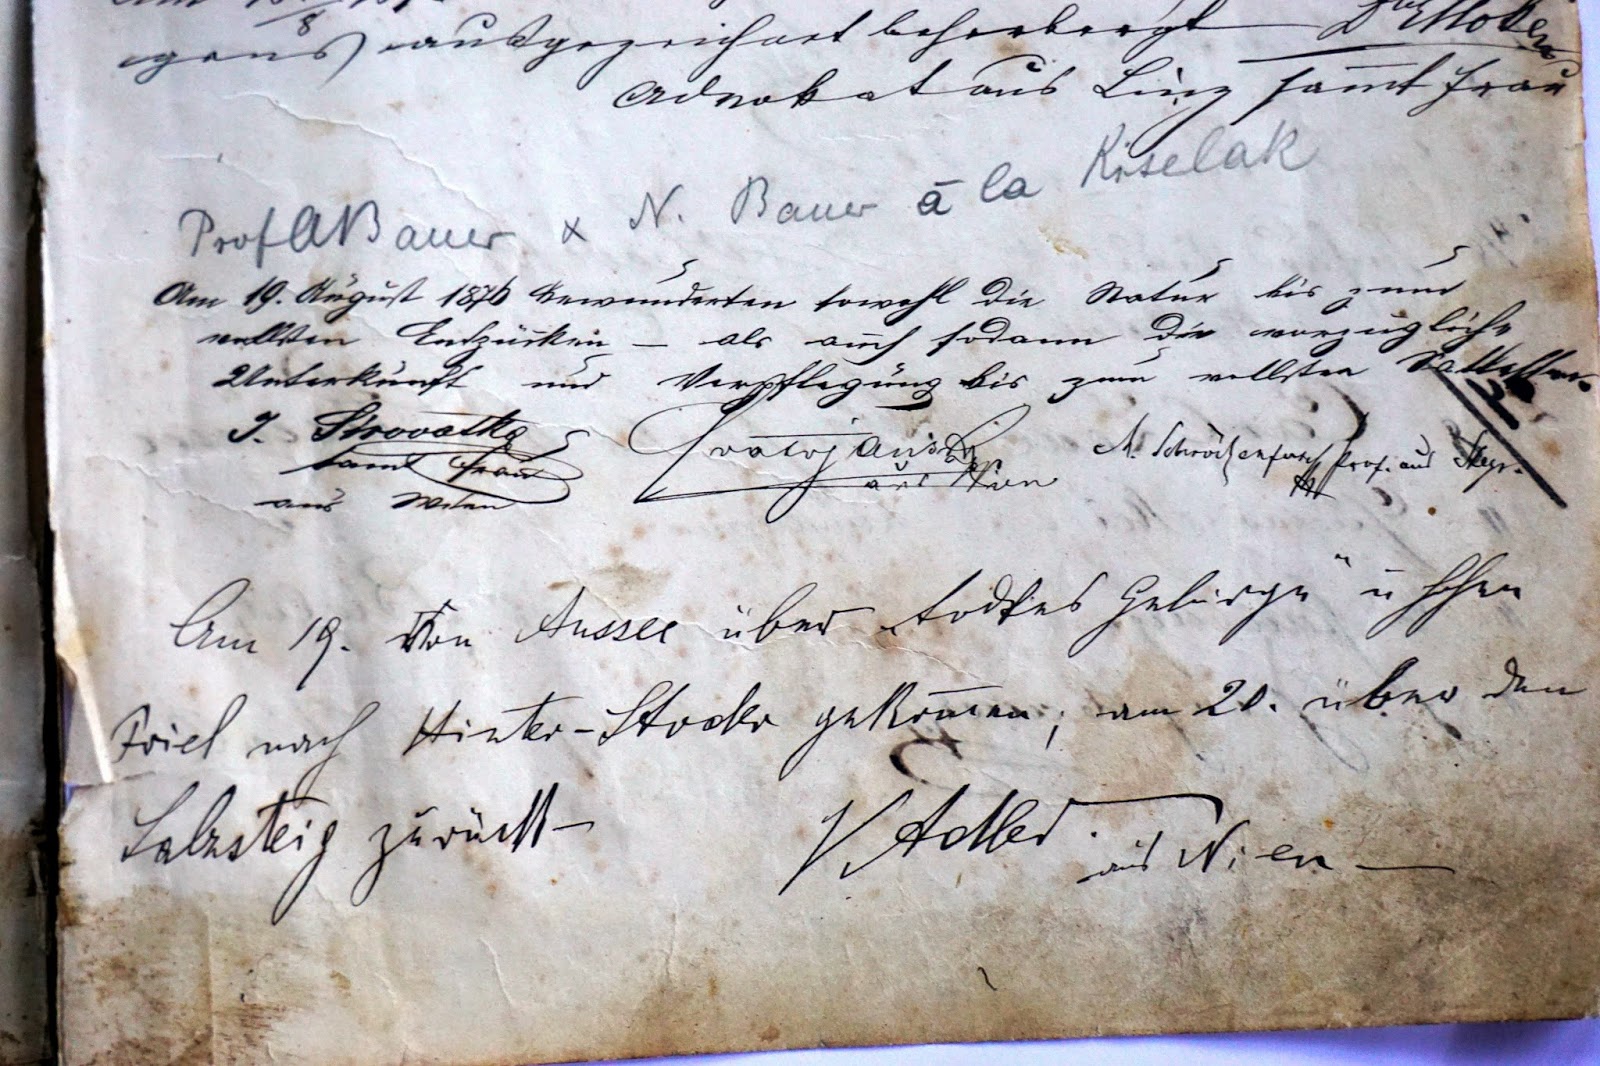 gens) ausgezeichnet beherbergt
Advokat aus Linz samt Frau
Prof A Bauer & N. Bauer à la Kiselak
Am 19. August 1876 bewunderten sowohl die Natur bis zum
vollsten Entzücken – als auch sodann die vorzügliche
Unterkunft und Verpflegung bis zum vollsten
J. Strovatka
samt Frau
aus Wien
aus Wien
Prof. aus Steyr.
Am 19. Von Aussee über „todtes Gebirge" u hohen
Priel nach Hinter-Stoder gekom̅en; am 20. über den
Salzsteig zurück –
V. Adler aus Wien –